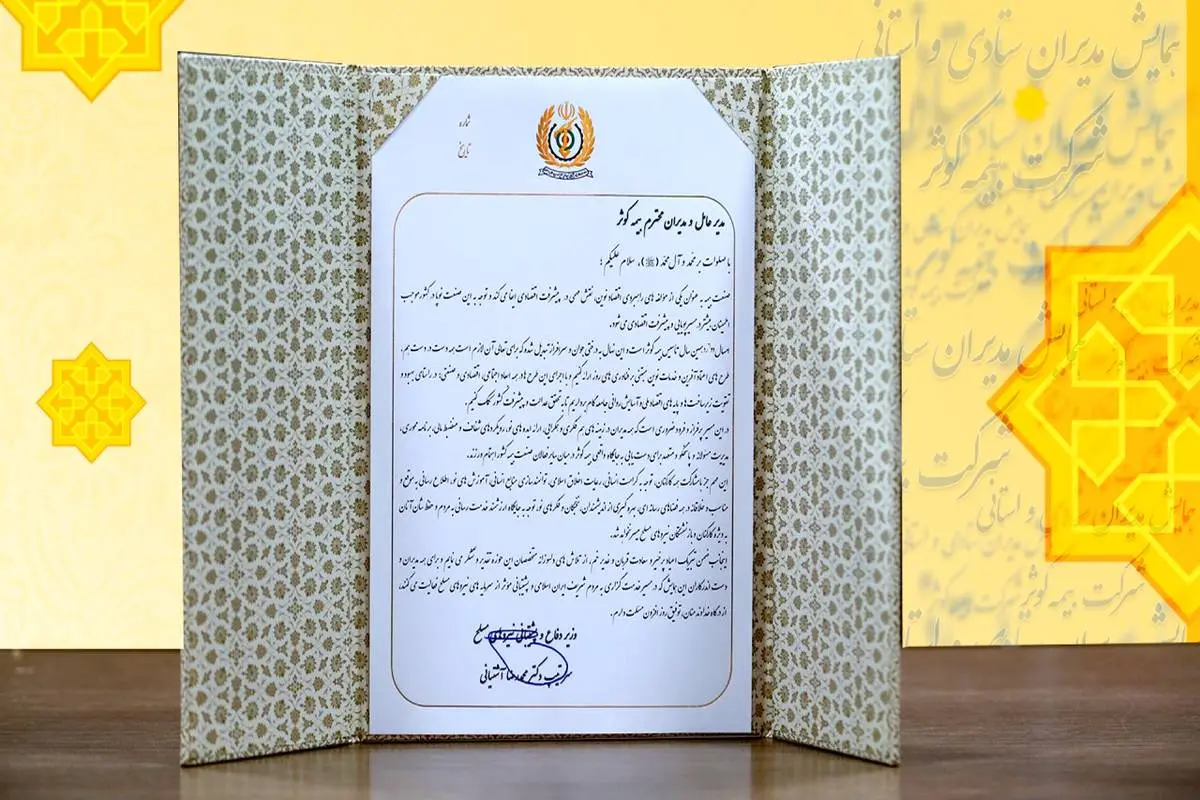 همایش مدیران ستادی و استانی
شرکت بیمه کوثر
شماره
تاریخ
مدیر عامل و مدیران محترم بیمه کوثر
با صلوات بر محمد و آل محمد (ﷺ)، سلام علیکم؛
صنعت بیمه به عنوان یکی از مولفه های راهبردی اقتصاد نوین، نقش مهمی در پیشرفت اقتصادی ایفا می کند و توجه به این صنعت نوپا در کشور موجب
اطمینان بیشتر در مسیر پویایی و پیشرفت اقتصادی می شود.
امسال دوازدهمین سال تاسیس بیمه کوثر است و این نهال به درختی جوان و سرافراز تبدیل شده که برای تعالی آن لازم است همه دست در دست هم،
طرح های اعتمادآفرین و خدمات نوین مبتنی بر فناوری های روز ارائه کنیم و با اجرای این طرح ها در همه ابعاد اجتماعی، اقتصادی و صنعتی؛ در راستای بهبود و
تقویت زیرساخت ها و پایه های اقتصاد ملی و آسایش روانی جامعه گام برداریم تا به تحقق عدالت و پیشرفت کشور کمک کنیم.
در این مسیر پر فراز و فرود ضروری است که همه مدیران در زمینه های هم فکری و همگرایی، ارائه ایده های نو، رویکردهای شفاف و منضبط مالی، برنامه محوری،
مدیریت مسئولانه و پاسخگو و متعهد برای دست یابی به جایگاه واقعی بیمه کوثر در میان سایر فعالان صنعت بیمه کشور اهتمام ورزند.
این مهم جز با مشارکت همه کارکنان، توجه به کرامت انسانی، رعایت اخلاق اسلامی، توانمندسازی منابع انسانی، آموزش های نو، اطلاع رسانی به موقع و
مناسب و خلاقانه در همه فضاهای رسانه ای، بهره گیری از اندیشمندان، نخبگان و فکرهای نو، توجه به جایگاه ارزشمند خدمت رسانی به مردم و حفظ شان آنان
به ویژه کارکنان و بازنشستگان نیروهای مسلح میسر نخواهد شد.
اینجانب ضمن تبریک اعیاد پر خیر و سعادت قربان و غدیر خم، از تلاش های دلسوزانه متخصصان این حوزه تقدیر و تشکر می نمایم و برای همه مدیران و
دست اندرکاران این همایش که در مسیر خدمت گزاری به مردم شریف ایران اسلامی و پشتیبانی موثر از سرمایه های نیروهای مسلح فعالیت می کنند،
از درگاه خداوند منان، توفیق روز افزون مسئلت دارم.
وزیر دفاع و پشتیبانی نیروهای مسلح
سرتیپ دکتر محمدرضا آشتیانی